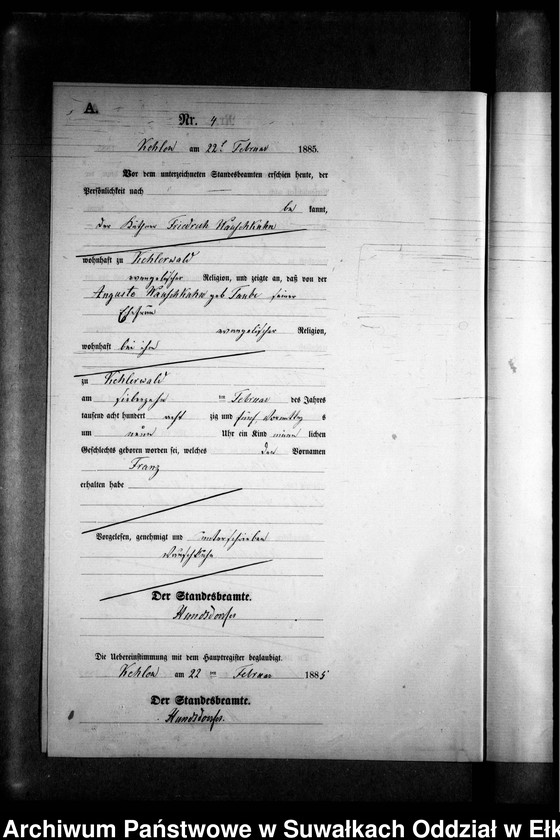 A.
Nr. 4
Kehlen am 22t Februar 1885.
Vor dem unterzeichneten Standesbeamten erschien heute, der
Persönlichkeit nach
be kannt,
der Käthner Friedrich Wauschkuhn
wohnhaft zu Kehlerwald
evangelischer Religion, und zeigte an, daß von der
Auguste Wauschkuhn geb Taube seiner
Ehefrau
evangelischer Religion,
wohnhaft bei ihm
zu Kehlerwald
am siebenzehn ten Februar des Jahres
tausend acht hundert acht zig und fünf Vormittag s
um neun Uhr ein Kind männ lichen
Geschlechts geboren worden sei, welches den Vornamen
Franz
erhalten habe
Vorgelesen, genehmigt und unterschrieben
Wauschkuhn
Der Standesbeamte.
Hundsdorfer
Die Uebereinstimmung mit dem Hauptregister beglaubigt.
Kehlen am 22 ten Februar 1885
Der Standesbeamte.
Hundsdorfer.
Archiwum Państwowe w Suwałkach Oddział w Ełk